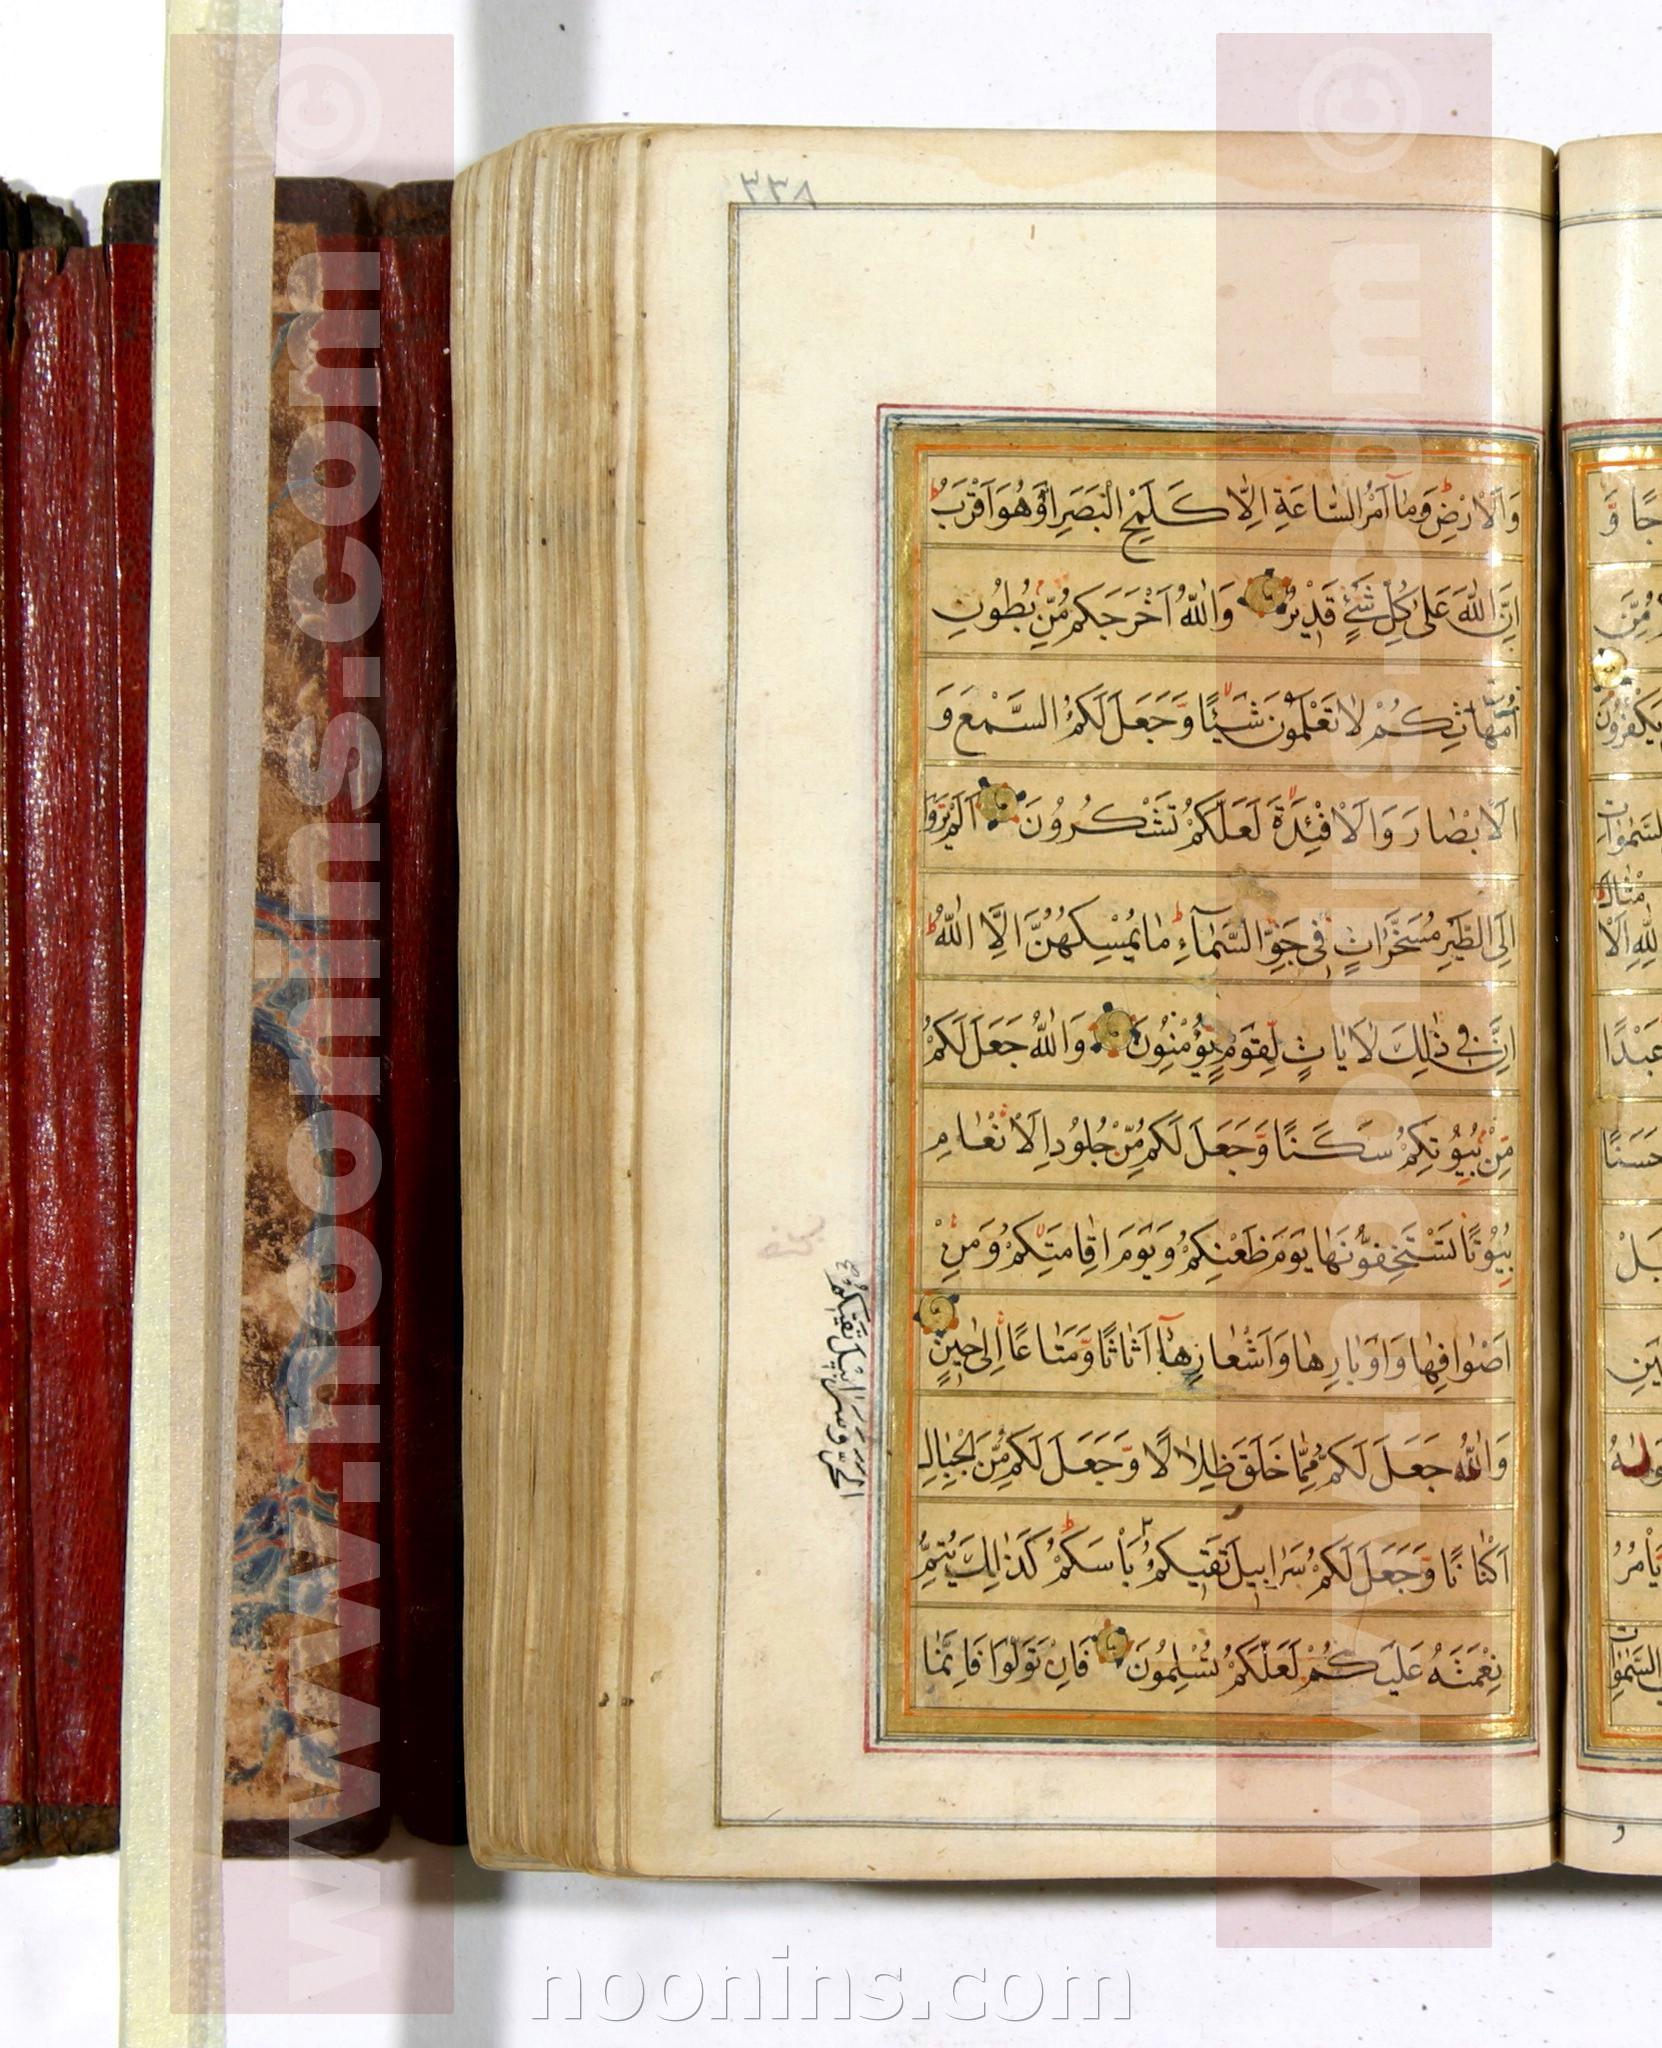 ٣٣٨
وَالْاَرْضِ وَمٰا اَمْرُ السّٰاعَةِ اِلّٰا كَلَمْحِ الْبَصَرِ اَوْ هُوَ اَقْرَبُ
اِنَّ اللّٰهَ عَلٰى كُلِّ شَیْءٍ قَدٖیرٌ وَاللّٰهُ اَخْرَجَكُمْ مِنْ بُطُونِ
اُمَّهٰاتِكُمْ لٰا تَعْلَمُونَ شَیْئًا وَجَعَلَ لَكُمُ السَّمْعَ وَ
الْاَبْصٰارَ وَالْاَفْئِدَةَ لَعَلَّكُمْ تَشْكُرُونَ اَلَمْ یَرَوْا
اِلَی الطَّیْرِ مُسَخَّرٰاتٍ فٖی جَوِّ السَّمٰٓاءِ مٰا یُمْسِكُهُنَّ اِلَّا اللّٰهُ
اِنَّ فٖی ذٰلِكَ لَاٰیٰاتٍ لِقَوْمٍ یُؤْمِنُونَ وَاللّٰهُ جَعَلَ لَكُمْ
مِنْ بُیُوتِكُمْ سَكَنًا وَجَعَلَ لَكُمْ مِنْ جُلُودِ الْاَنْعٰامِ
بُیُوتًا تَسْتَخِفُّونَهٰا یَوْمَ ظَعْنِكُمْ وَیَوْمَ اِقٰامَتِكُمْ وَمِنْ
اَصْوٰافِهٰا وَاَوْبٰارِهٰا وَاَشْعٰارِهٰٓا اَثٰاثًا وَمَتٰاعًا اِلٰى حٖینٍ
وَاللّٰهُ جَعَلَ لَكُمْ مِمّٰا خَلَقَ ظِلٰالًا وَجَعَلَ لَكُمْ مِنَ الْجِبٰالِ
اَكْنٰانًا وَجَعَلَ لَكُمْ سَرٰابٖیلَ تَقٖیكُمْ بَاْسَكُمْ كَذٰلِكَ یُتِمُّ
نِعْمَتَهُ عَلَیْكُمْ لَعَلَّكُمْ تُسْلِمُونَ فَاِنْ تَوَلَّوْا فَاِنَّمٰا
الْحَرَّ وَسَرٰابٖیلَ تَقٖیكُمْ
www.noonins.com ©
www.noonins.com ©
noonins.com